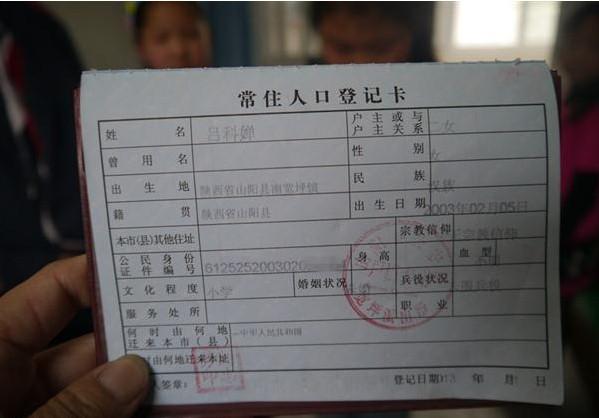 常住人口登记卡
姓名 吕科婵 户主或与户主关系 二女
曾用名 性别 女
出生地 陕西省山阳县南宽坪镇 民族 汉族
籍贯 陕西省山阳县 出生日期 2003年02月05日
本市(县)其他住址 宗教信仰
公民身份证件编号 6125252003020 身高 血型
文化程度 小学 婚姻状况 兵役状况
服务处所 职业
何时由何地迁来本市(县) 中华人民共和国
时由何地迁来本址
人签章: 登记日期: 年 月